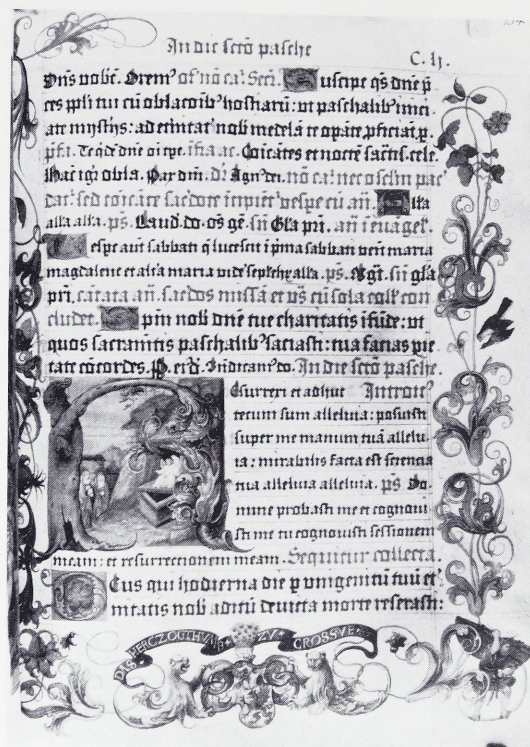 In die sctō pasche
C. lj.
Dn̄s vobē. Orem⁹ of nō caꝰ. Secī. Suscipe q̄s dn̄e p̄
ces pp̄li tui cū oblacōib⁹ hostiarū: ut paschalib⁹ inici
ate mysterijs: ad et̄nitat̄ nob̄ medelā te opāte pficiāt. p.
dar. sed cōicāte sacdote incipiēt vespe cū an̄. Alla
alla alla. ps. Laud. do. os gē. sn̄ Gla pri. an̄ i euāgel.
Vespe aut̄ sabbati q̄ lucescit i p̄ma sabbati venit maria
magdalene et alt̄a maria videꝰ sepulchꝝ alla. ps. Mḡt. sn̄ gla
pri. cātata an̄. sacdos missā et vs̄ cū sola coll̄ con
cludet. Spm̄ nob̄ dn̄e tue charitatis ifūde: ut
quos sacramētis paschalib⁹ saciasti: tua facias pie
tate cōcordes. P. eiꝰdē. In die sctō pasche.
Resurrexi et adhuc Introit⁹
tecum sum alleluia: posuisti
super me manum tuā allelu-
ia: mirabilis facta est sciencia
tua alleluia alleluia. ps Do
mine probasti me et cognoui
sti me tu cognouisti sessionem
meam: et resurrectionem meam. Sequitur collecta.
Deus qui hodierna die p unigenitū tuū et̄
nitatis nob̄ aditū deuicta morte reserasti:
DAS HERCZOGTHUMB ZU CROSSVE